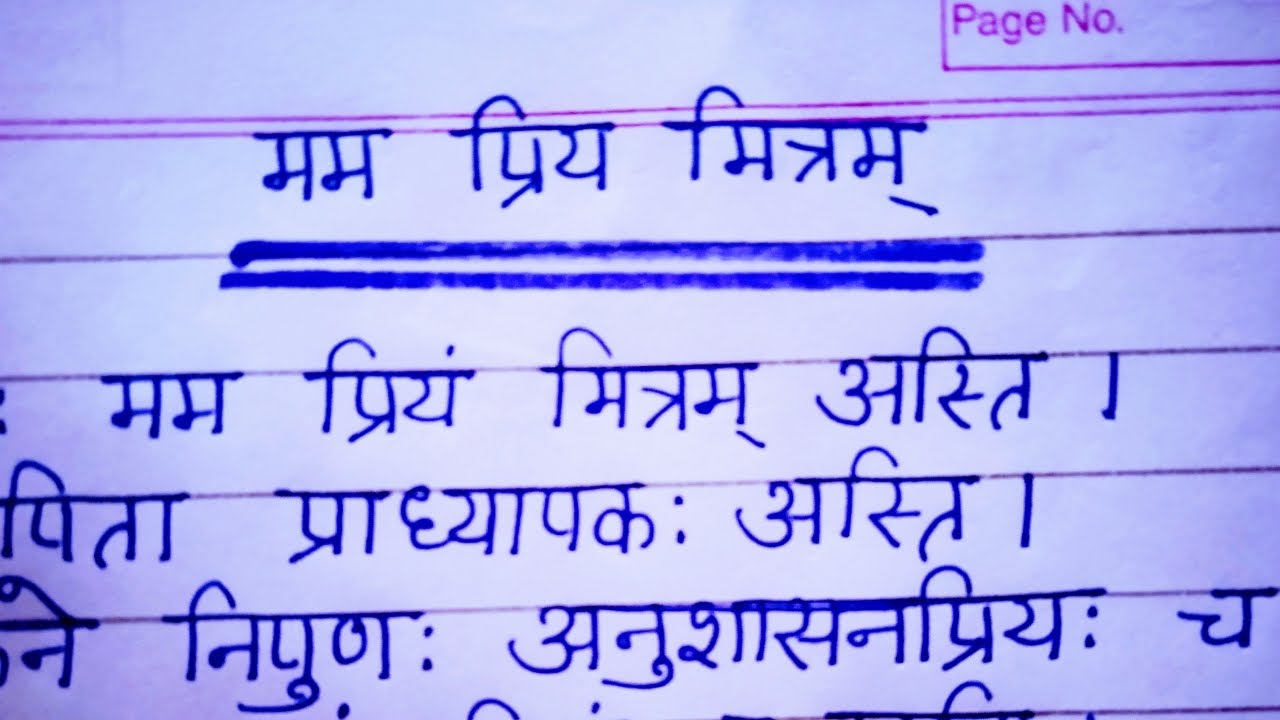 Page No.
मम प्रिय मित्रम्
मम प्रियं मित्रम् अस्ति ।
पिता प्राध्यापकः अस्ति ।
निपुणः अनुशासनप्रियः च